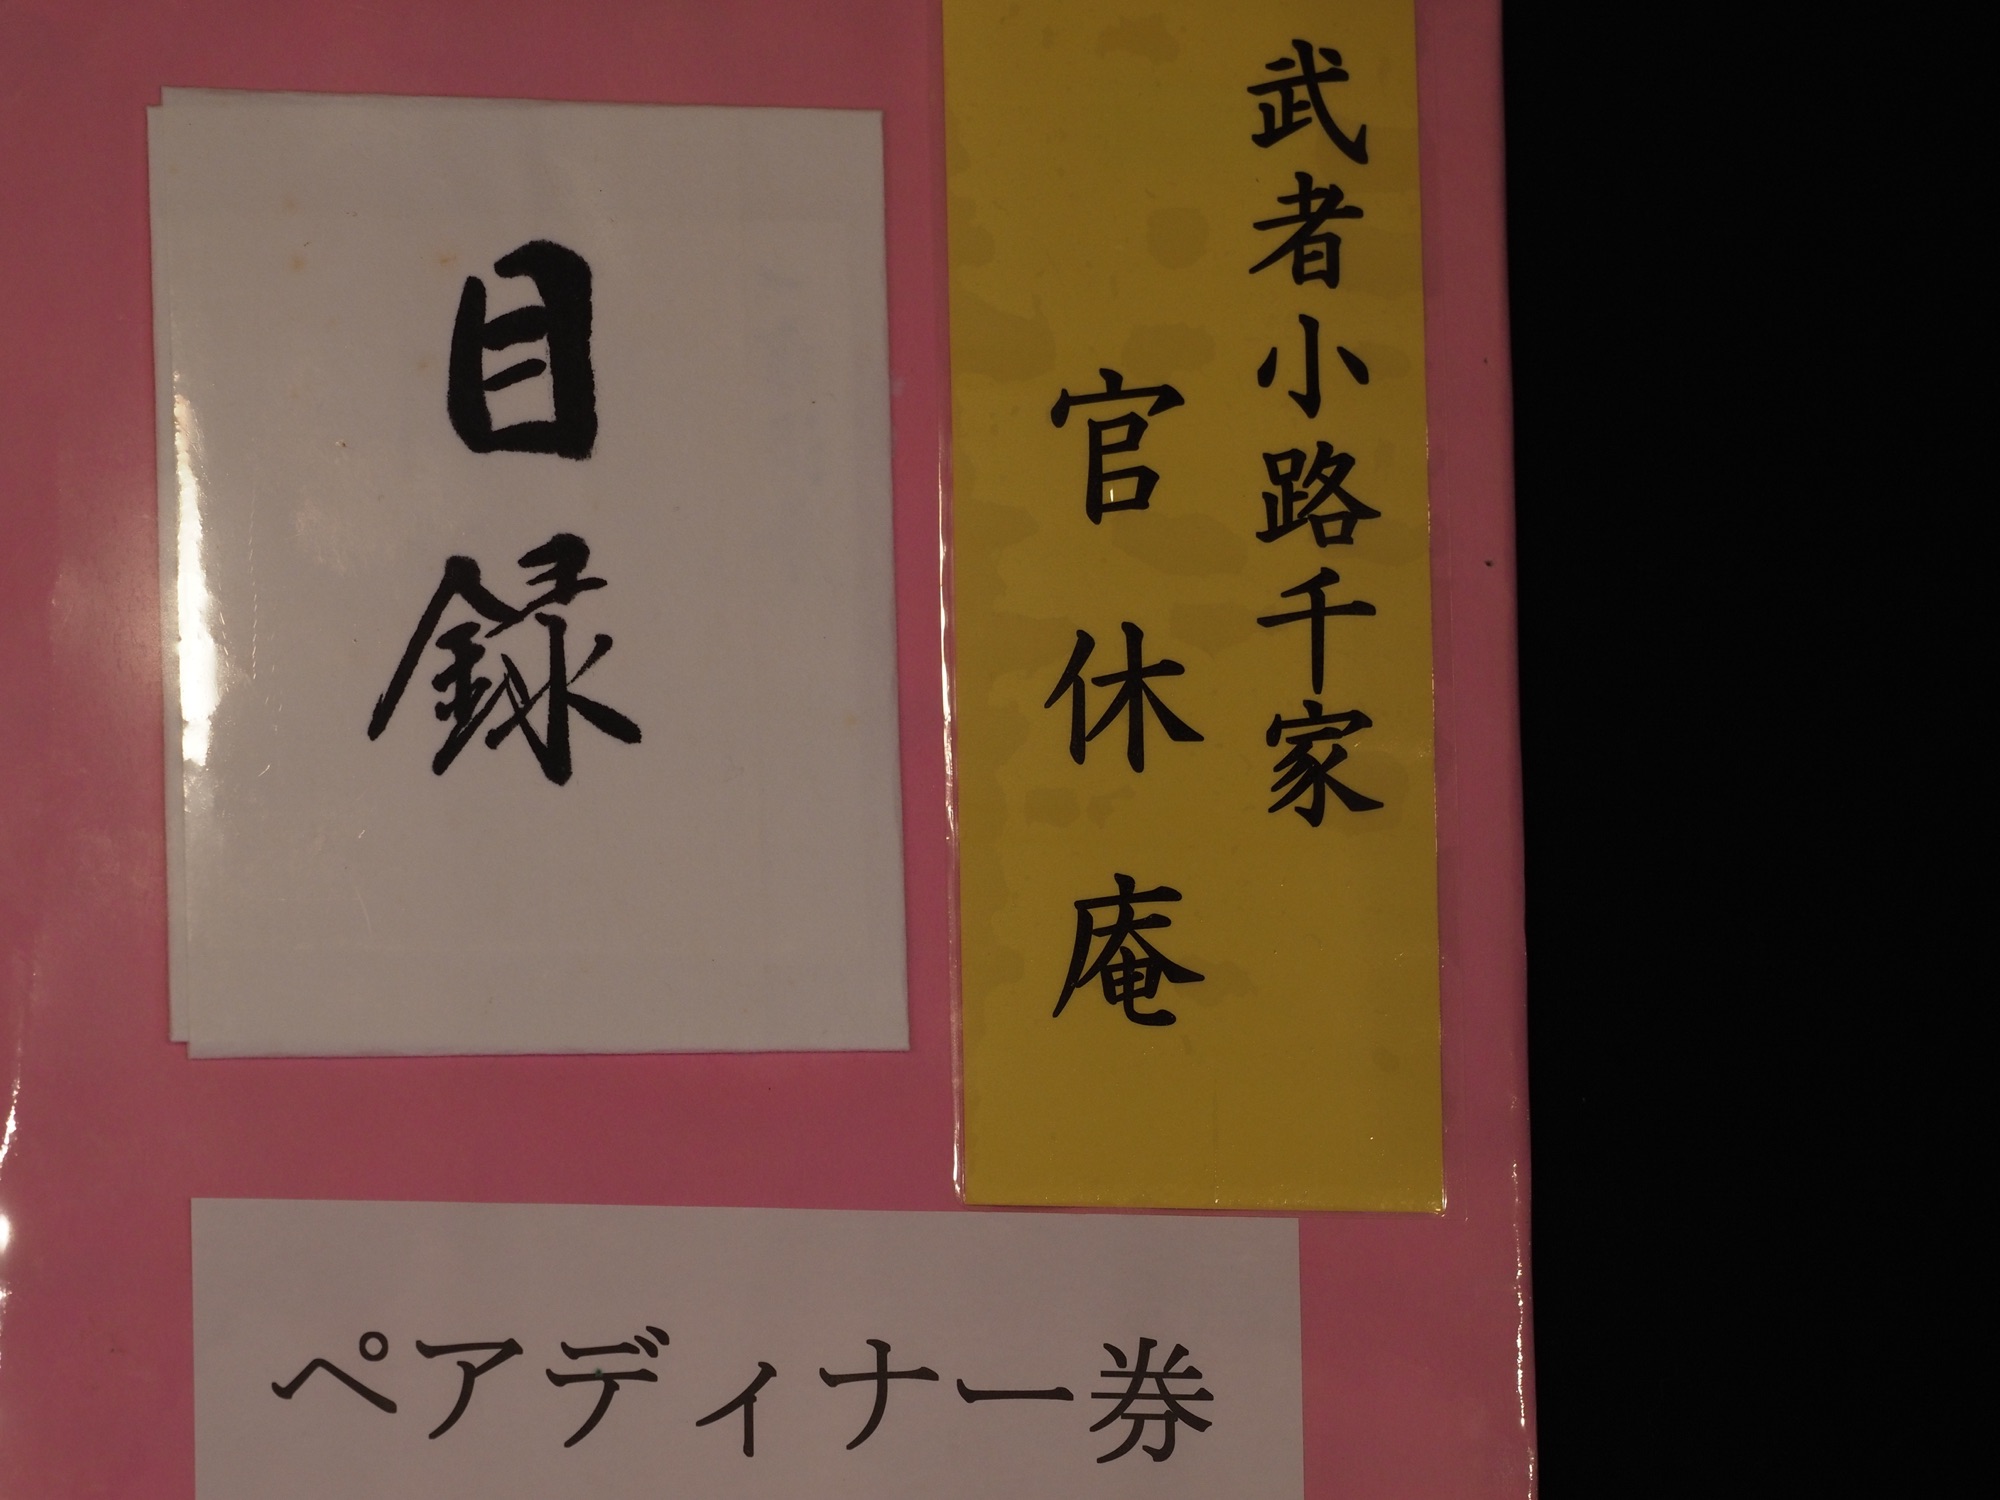 武者小路千家
官休庵
目録
ペアディナー券